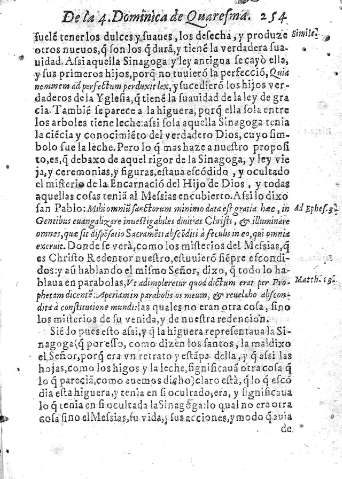 De la 4. Dominica de Quaresma. 254
suelē tenerlos dulces y suaues, los desecha, y produze
otros nueuos, q̄ son los q̄ durā, y tienē la verdadera sua-
uidad. Assi aquella Sinagoga y ley antigua secayò ella,
y sus primeros hijos, porq̄ no tuuierō la perfecciō, Quia
neminem ad perfectum perduxit lex, y sucedierō los hijos ver-
daderos de la Yglesia, q̄ tienē la suauidad de la ley de gra-
cia. Tambiē se parece a la higuera, porq̄ ella sola entre
los arboles tiene leche: assi sola aquella Sinagoga tenia
la ciēcia y conocimiēto del verdadero Dios, cuyo sim-
bolo sue la leche. Pero lo q̄ mas haze a nuestro proposi
to, es, q̄ debaxo de aquel rigor de la Sinagoga, y ley vie
ja, y ceremonias, y figuras, estaua escōdido, y ocultado
el misterio de la Encarnaciō del Hijo de Dios, y todas
aquellas cosas teniā al Messias encubierto. Assi lo dixo
san Pablo: Mihi omniū sanctorum minimo data est gratia hæc, in
Gentibus euangelizare inuestigabiles diuitias Christi, & illuminare
omnes, quæ sit dispēsatio Sacramēti abscōditi à seculis in eo, qui omnia
creauit. Donde se verà, como los misterios del Messias, q̄
es Christo Redentor nuestro, estuuierō siēpre escondi-
dos: y aū hablando el mismo Señor, dixo, q̄ todo lo ha-
blaua en parabolas, Vt adimpleretur quod dictum erat per Pro-
phetam dicentē: Aperiam in parabolis os meum, & reuelabo abscon-
dita à constitutione mundi: las quales no eran otra cosa, sino
los misterios de su venida, y de nuestra redencion.
Siēdo pues esto assi, y q̄ la higuera representaua la Si-
nagoga (q̄ por esso, como dizen los santos, la maldixo
el Señor, porq̄ era vn retrato y estāpa della, y q̄ assi las
hojas, como los higos y la leche, significauā otra cosa q̄
lo q̄ pareciā, como auemos dicho) claro està, q̄ lo q̄ escō
dia esta higuera, y tenia en si ocultado, era, y significaua
lo q̄ tenia en si ocultada la Sinagōga: lo qual no era otra
cosa sino el Messias, su vida, y sus acciones, y modo q̄ auia
de
Simile.
Ad Ephes. 3.
Matth. 13.